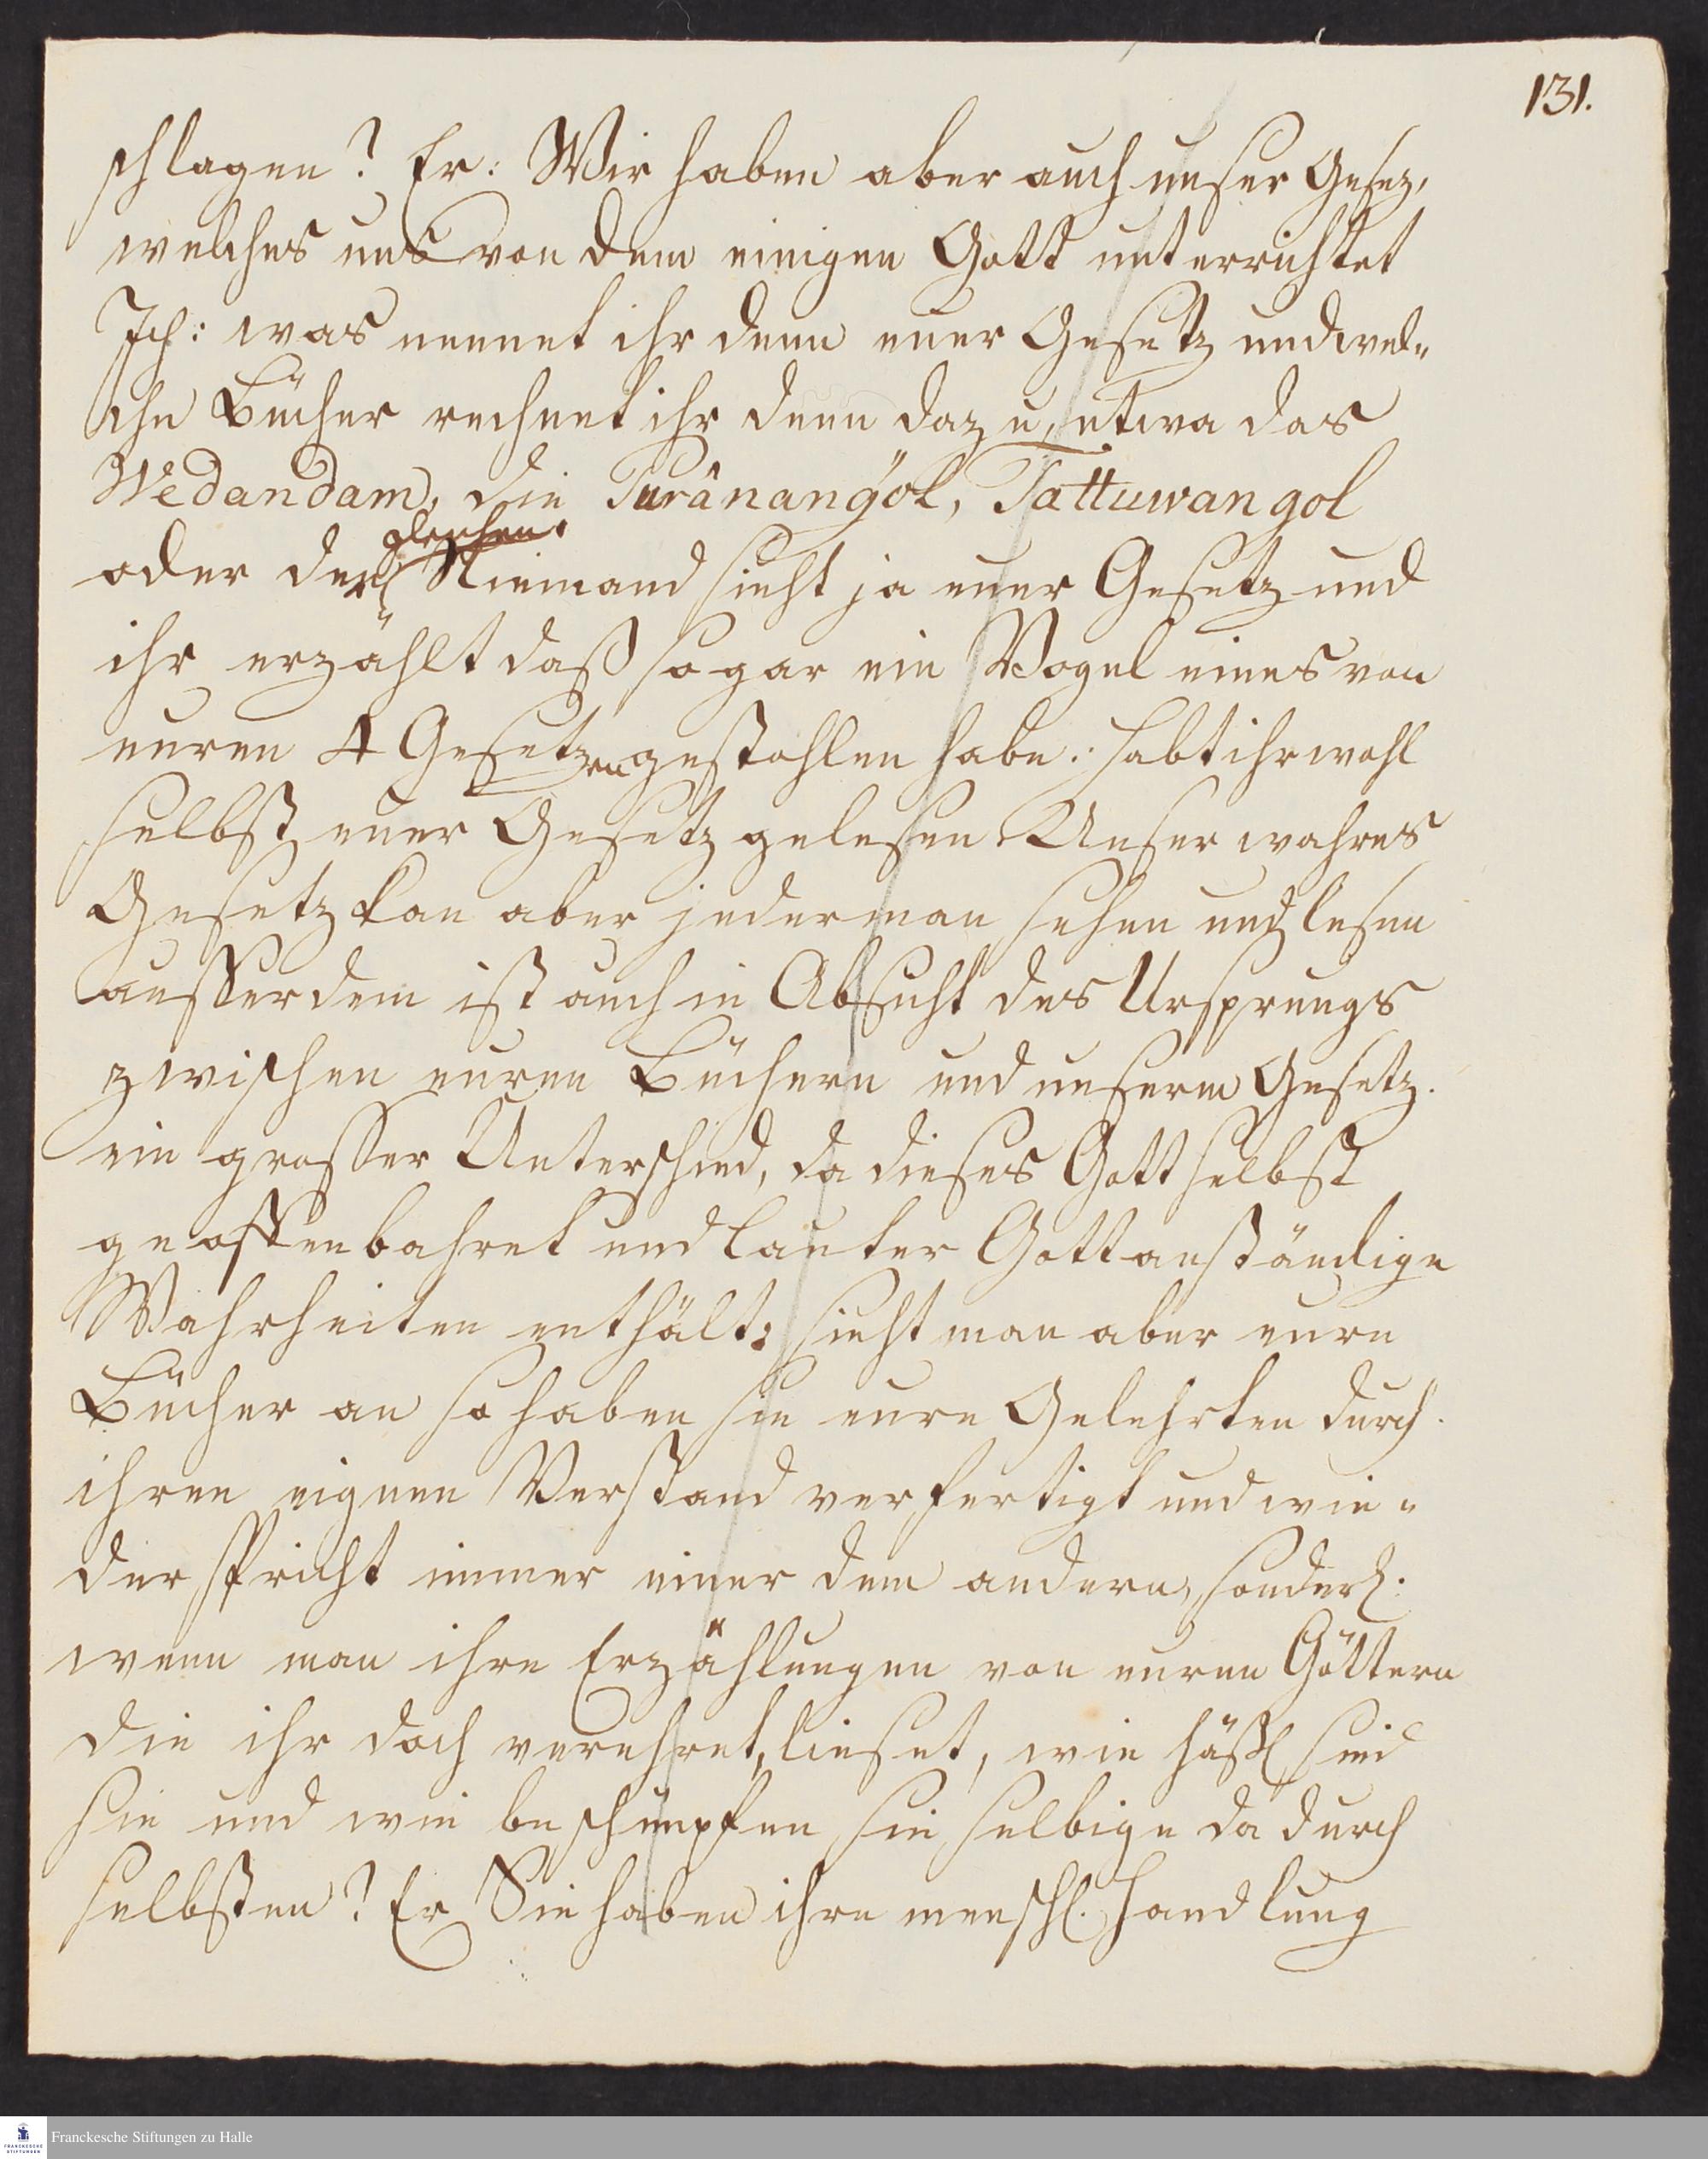 131.
schlagen? Er: Wir haben aber auch unser Gesez,
welches uns von dem einigen Gott unterrichtet
Ich: was nennet ihr denn euer Gesetz und wel-
che Bücher rechnet ihr denn dazu, etwa das
Wedandam, die Purânangöl, Tattuwangol
gleichen.
oder der Niemand sieht ja euer Gesetz und
ihr erzählt daß sogar ein Vogel eines von
euren 4 Gesetzen gestohlen habe: habt ihr wohl
selbst euer Gesetz gelesen. Unser wahres
Gesetz kan aber jederman sehen und lesen
ausserdem ist auch in Absicht des Ursprungs
zwischen euren Büchern und unserm Gesetz.
ein grosser Unterschied, da dieses Gott selbst
geoffenbahret und lauter Gott anständige
Wahrheiten enthält; sieht man aber eure
Bücher an so haben sie eure Gelehrten durch
ihren eignen Verstand verfertigt und wie-
der spricht immer einer dem andern, sonderl.
wenn man ihre Erzählungen von euren Göttern
die ihr doch verehret, lieset, wie häßl sind
sie und wie beschimpfen sie selbige da durch
selbsten? Er Sie haben ihre menschl. Handlung
FRANCKESCHE STIFTUNGEN
Franckesche Stiftungen zu Halle